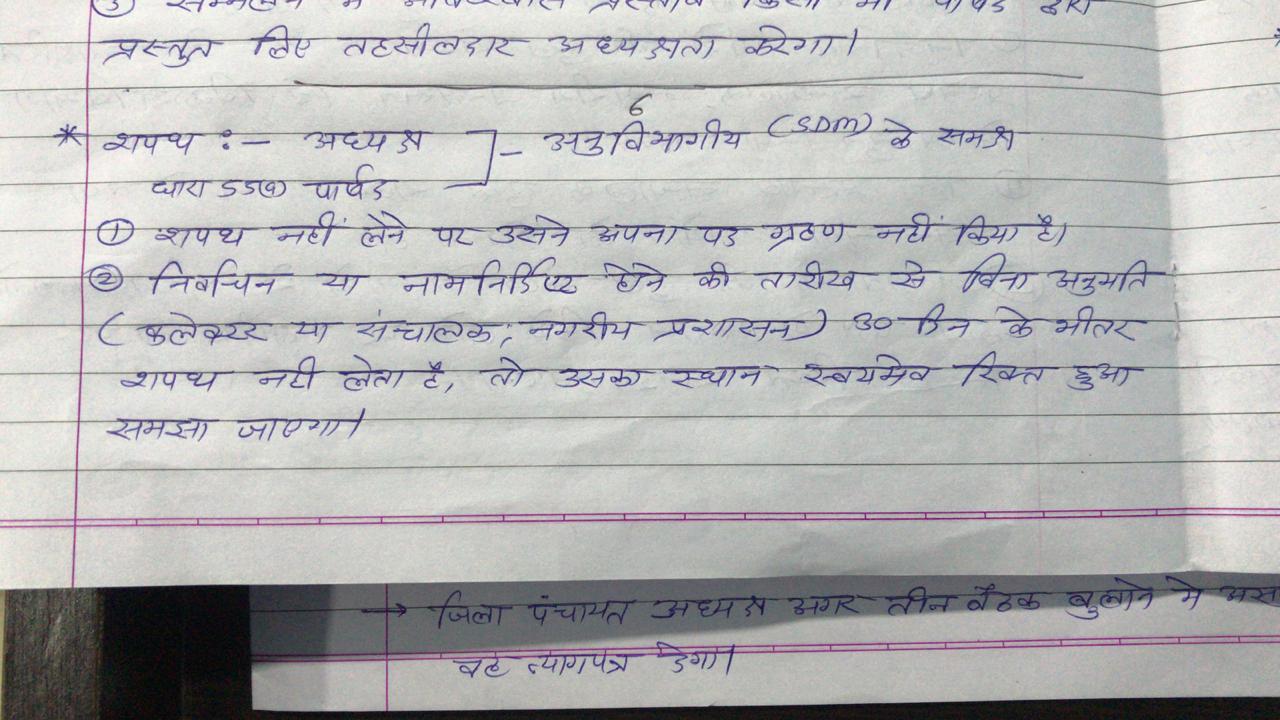 ③ सम्मेलन में अविश्वास प्रस्ताव किसी भी पार्षद द्वारा
प्रस्तुत लिए तहसीलदार अध्यक्षता करेगा।
6
* शपथ :- अध्यक्ष ] - अनुविभागीय (SDM) के समक्ष
धारा 55(9) पार्षद
① शपथ नहीं लेने पर उसने अपना पद ग्रहण नहीं किया है।
② निर्वाचन या नामनिर्दिष्ट होने की तारीख से बिना अनुमति
(कलेक्टर या संचालक, नगरीय प्रशासन) 30 दिन के भीतर
शपथ नही लेता है, तो उसका स्थान स्वयमेव रिक्त हुआ
समझा जाएगा।
→ जिला पंचायत अध्यक्ष अगर तीन बैठक बुलाने मे
वह त्यागपत्र देगा।